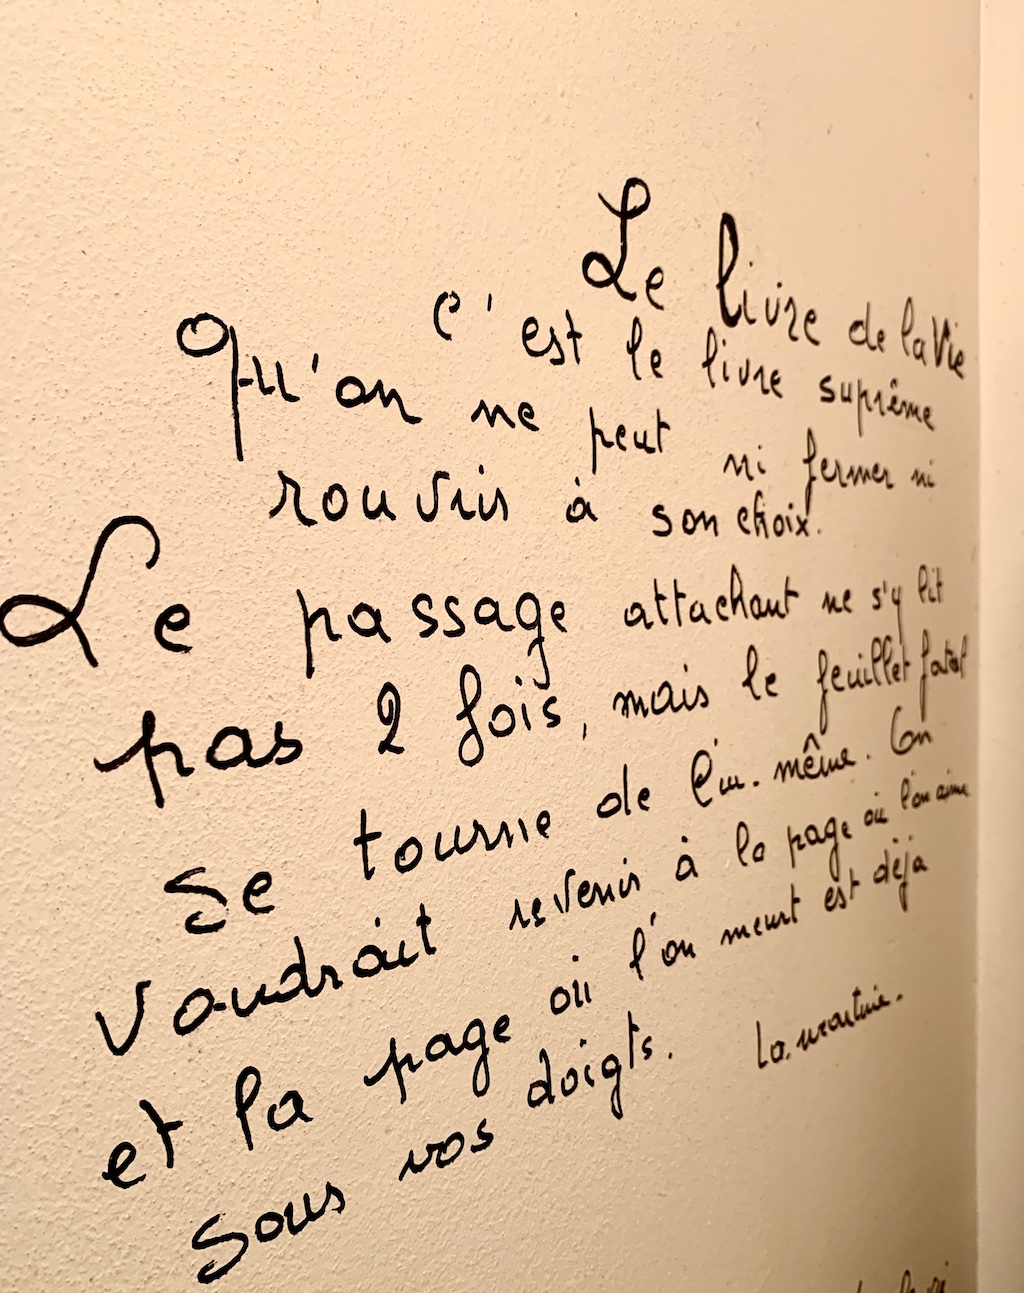 Le livre de la Vie
c'est le livre suprême
Qu'on ne peut ni fermer ni
rouvrir à son choix.
Le passage attachant ne s'y lit
pas 2 fois, mais le feuillet fatal
se tourne de lui-même. On
voudrait revenir à la page où l'on aime
et la page où l'on meurt est déjà
sous vos doigts. Lamartine.